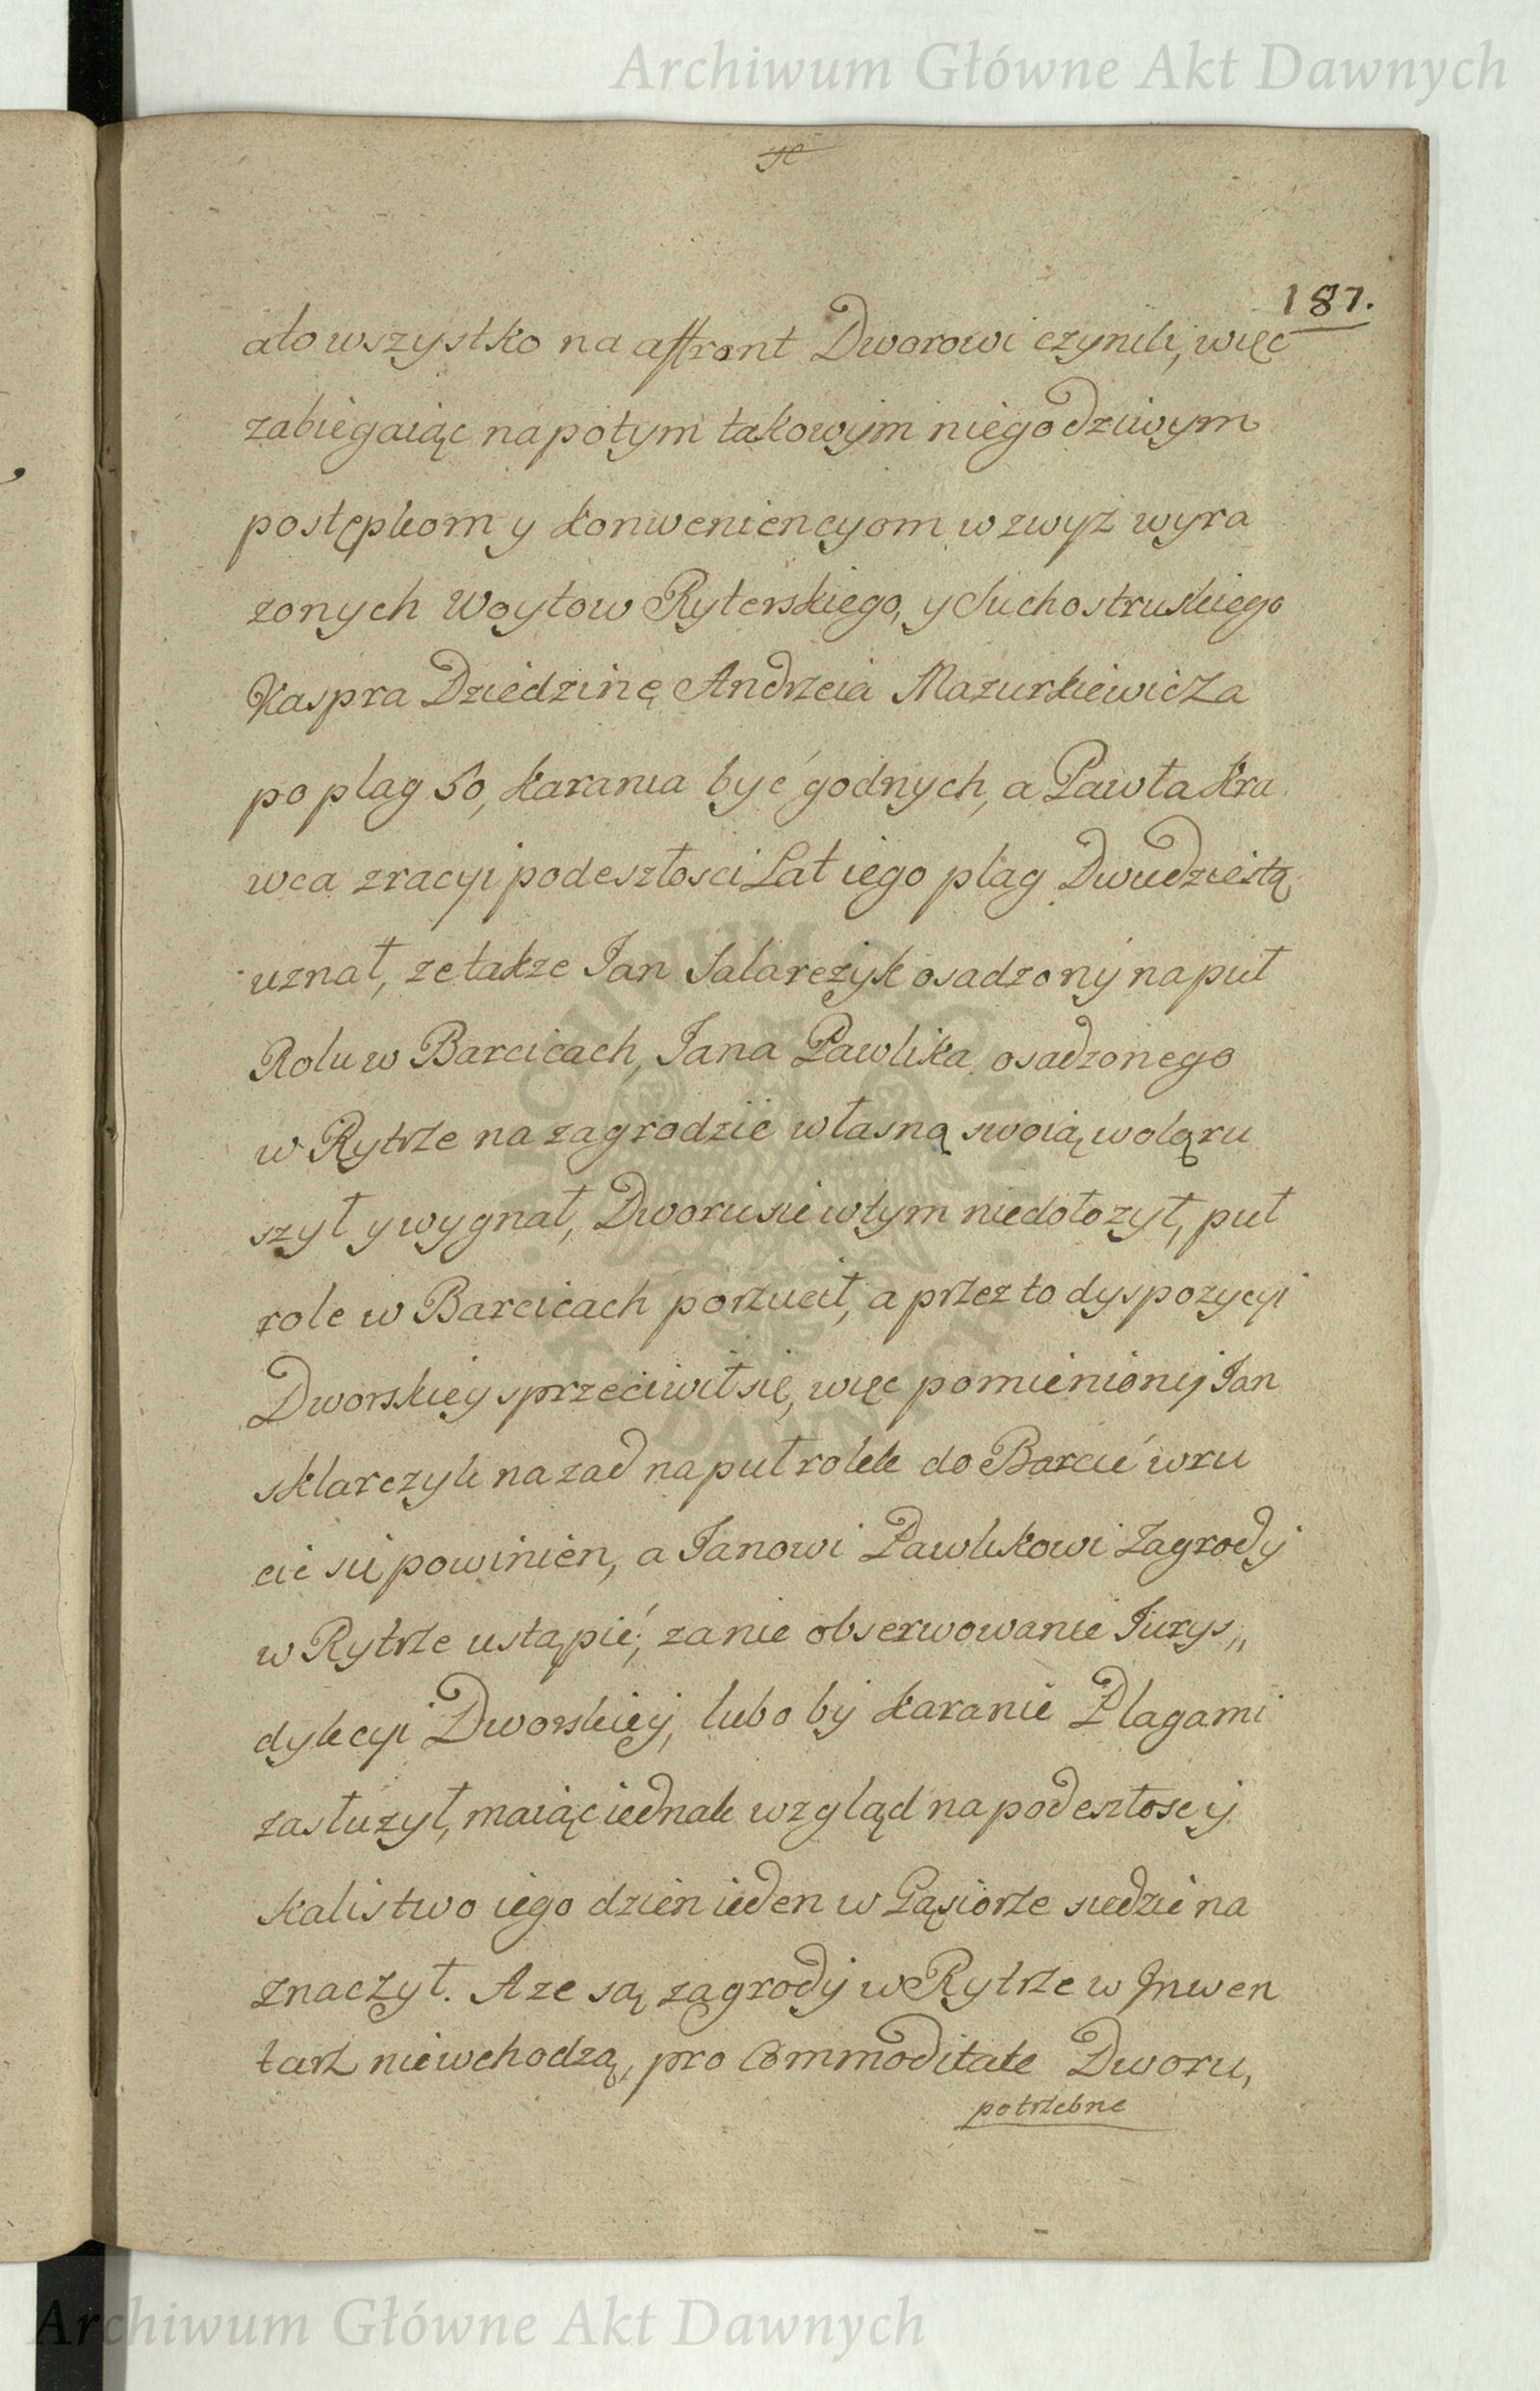 Archiwum Główne Akt Dawnych
187.
ato wszystko na affront Dworowi czynili, więc
zabiegaiąc napotym takowym niegodziwym
postępkom y konweniencyom wzwyż wyra
zonych Woytow Ryterskiego, y Suchostruskiego
Kaspra Dziedzinę Andrzeia Mazurkiewicza
po plag 50, karania być godnych, a Pawła Kra
wca zracyi podeszłosci Lat iego plag Dwudziestą
uznał, ze takze Jan Salarczyk osadzony na puł
Rolu w Barcicach, Jana Pawlika osadzonego
w Rytrze na zagrodzie własną swoią wolą ru
szył y wygnał, Dworu sie wtym niedołozył, puł
role w Barcicach porzucił, a przez to dyspozycyi
Dworskiey sprzeciwił się, więc pomieniony Jan
sklarczyk nazad na puł rolek do Barcic wru
cic sie powinien, a Janowi Pawlikowi Zagrody
w Rytrze ustąpić, za nie obserwowanie Jurys„
dykcyi Dworskiey, lubo by karanie Plagami
zasłuzył, maiąc iednak wzgląd na podeszłosc y
kalistwo iego dzien ieden w Gąsiorze siedzie na
znaczył. A ze są zagrody w Rytrze w Inwen
tarz niewchodzą, pro Commoditate Dworu,
potrzebne
Archiwum Główne Akt Dawnych